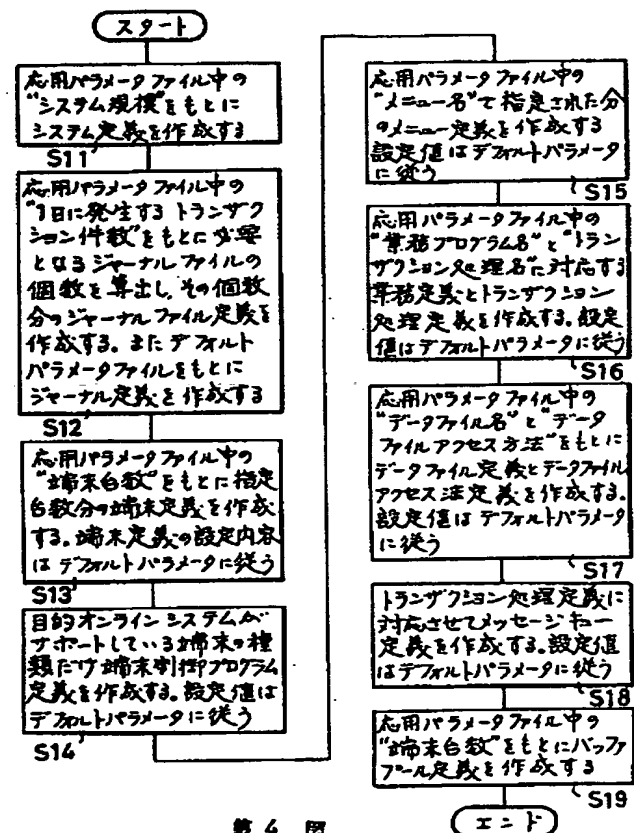 スタート
応用パラメータファイル中の
"システム規模"をもとに
システム定義を作成する
S11
応用パラメータファイル中の
"1日に発生するトランザク
ション件数"をもとに必要
となるジャーナルファイルの
個数を算出し、その個数
分のジャーナルファイル定義を
作成する。またデフォルト
パラメータファイルをもとに
ジャーナル定義を作成する
S12
応用パラメータファイル中の
"端末台数"をもとに指定
台数分の端末定義を作成
する。端末定義の設定内容
はデフォルトパラメータに従う
S13
目的オンラインシステムが
サポートしている端末の種
類だけ端末制御プログラム
定義を作成する。設定値は
デフォルトパラメータに従う
S14
応用パラメータファイル中の
"メニュー名"で指定された分
のメニュー定義を作成する
設定値はデフォルトパラメータ
に従う
S15
応用パラメータファイル中の
"業務プログラム名"と"トラン
ザクション処理名"に対応する
業務定義とトランザクション
処理定義を作成する。設定
値はデフォルトパラメータに従う
S16
応用パラメータファイル中の
"データファイル名"と"データ
ファイルアクセス方法"をもとに
データファイル定義とデータファイル
アクセス法定義を作成する。
設定値はデフォルトパラメータ
に従う
S17
トランザクション処理定義に
対応させてメッセージキュー
定義を作成する。設定値
はデフォルトパラメータに従う
S18
応用パラメータファイル中の
"端末台数"をもとにバッファ
プール定義を作成する
S19
エンド
第4図